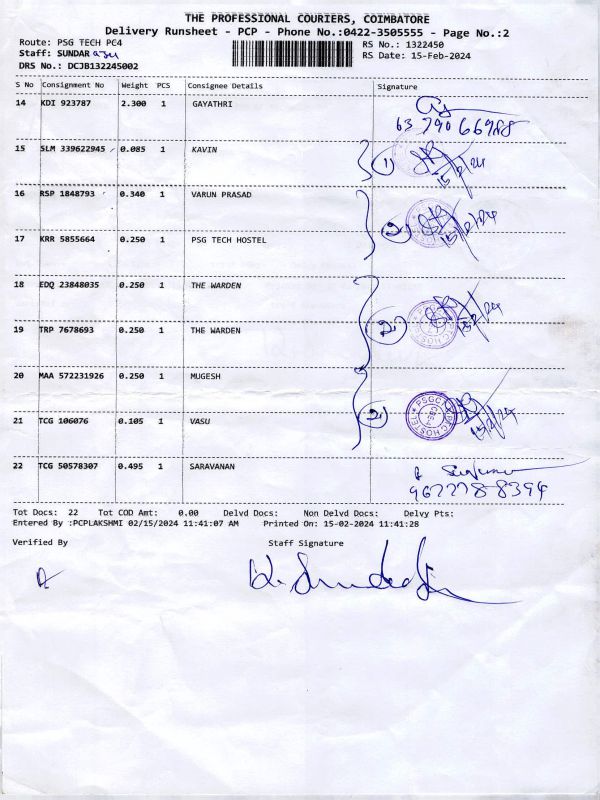 THE PROFESSIONAL COURIERS, COIMBATORE
Delivery Runsheet - PCP - Phone No.:0422-3505555 - Page No.:2
Route: PSG TECH PC4 RS No.: 1322450
Staff: SUNDAR RS Date: 15-Feb-2024
DRS No.: DCJB132245002
S No Consignment No Weight PCS Consignee Details Signature
14 KDI 923787 2.300 1 GAYATHRI
63 790 66988
15 SLM 339622945 0.085 1 KAVIN 1 15/2/24
16 RSP 1848793 0.340 1 VARUN PRASAD
2 15/2/24
17 KRR 5855664 0.250 1 PSG TECH HOSTEL
18 EDQ 23848035 0.250 1 THE WARDEN
2 15/2/24
19 TRP 7678693 0.250 1 THE WARDEN
20 MAA 572231926 0.250 1 MUGESH
2 15/2/24
21 TCG 106076 0.105 1 VASU
22 TCG 50578307 0.495 1 SARAVANAN
9677788394
Tot Docs: 22 Tot COD Amt: 0.00 Delvd Docs: Non Delvd Docs: Delvy Pts:
Entered By :PCPLAKSHMI 02/15/2024 11:41:07 AM Printed On: 15-02-2024 11:41:28
Verified By Staff Signature